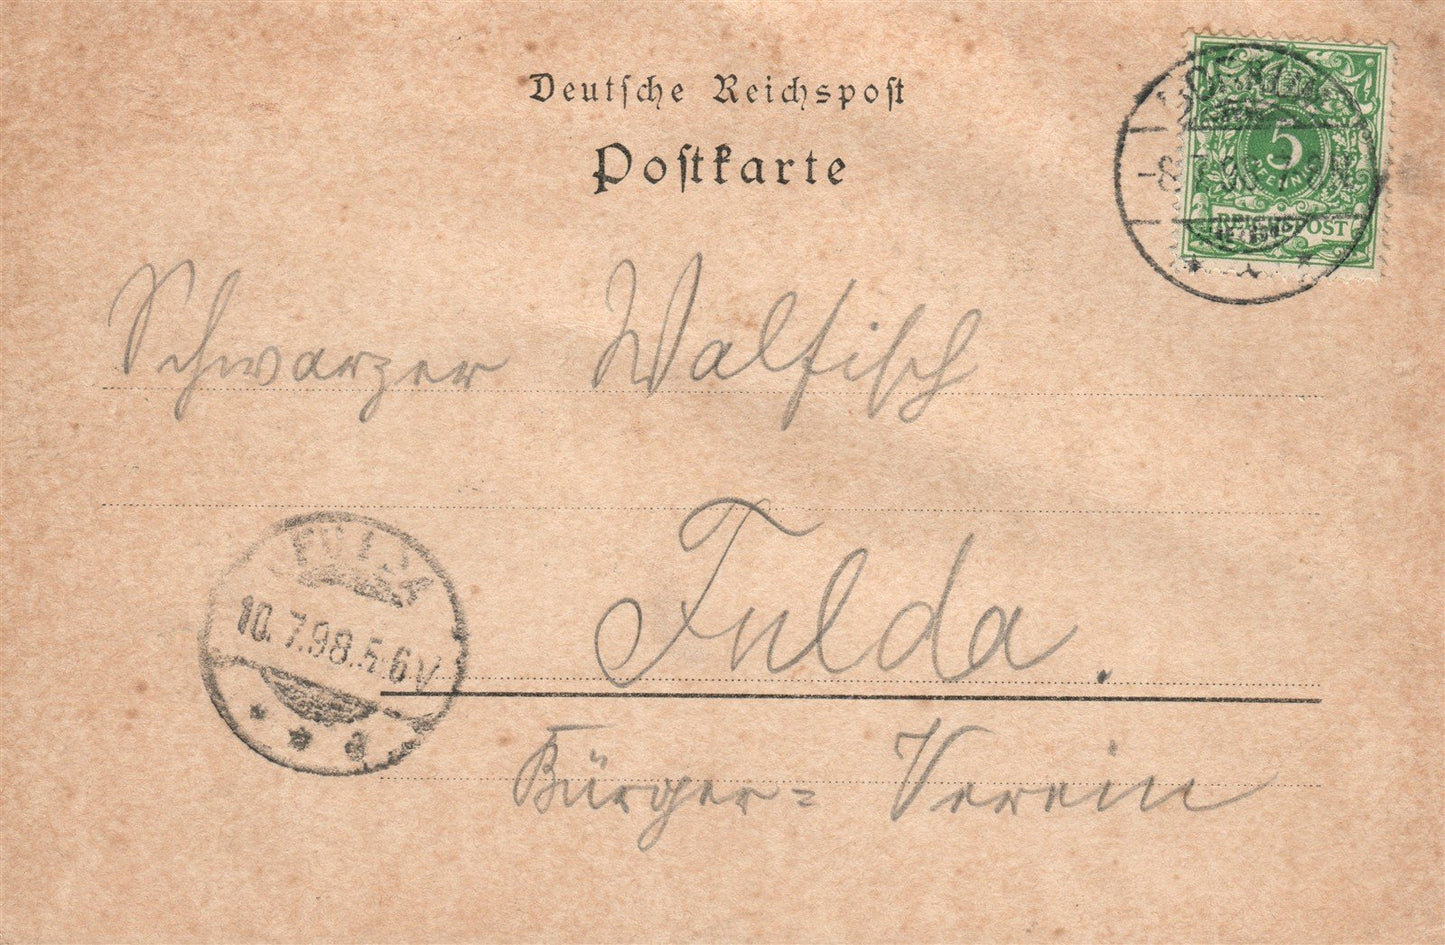 Deutsche Reichspost
Postkarte
5
PFENNIG
REICHSPOST
Schwarzer Walfisch
Fulda.
Bürger= Verein
FULDA
10.7.98.5-6V